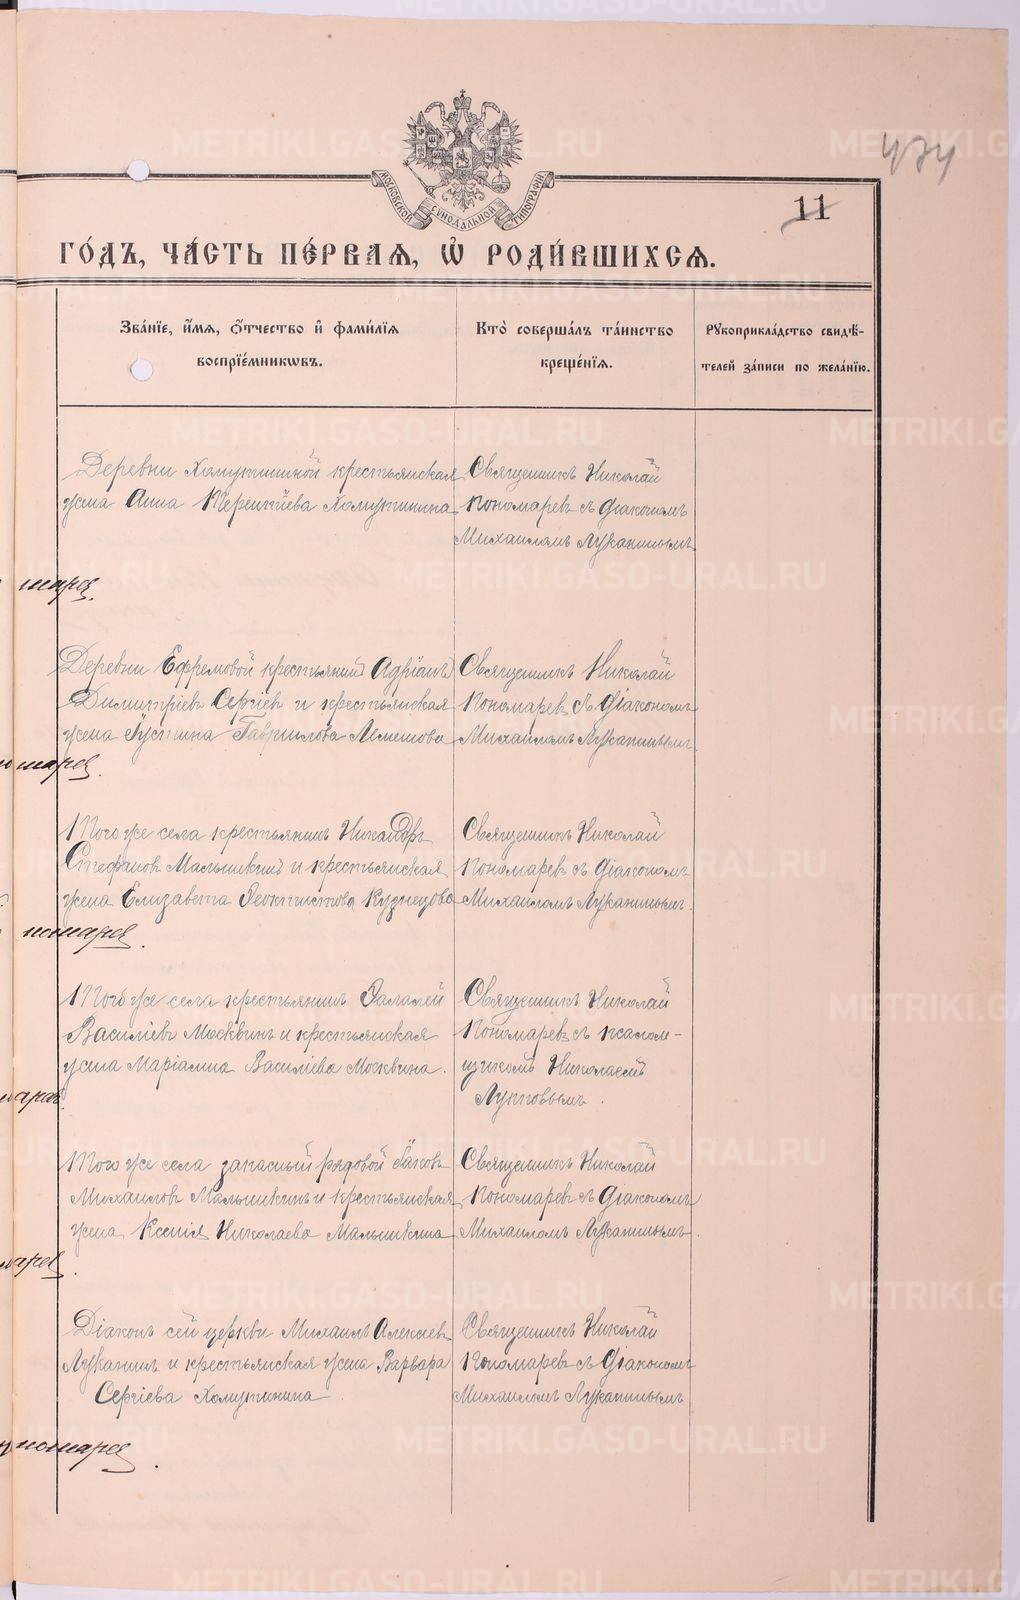 474
11
МОСКОВСКОЙ СѴНОДАЛЬНОЙ ТИПОГРАФІИ
ГО́ДЪ, ЧА́СТЬ ПЕ́РВАЯ, Ѽ РОДИ́ВШИХСЯ.
Зва́нїе, и҆́мѧ, ѻ҆́тчество и҆ фами́лїѧ
воспрїе́мникѡвъ.
Кто̀ соверша́лъ та́инство
креще́нїѧ.
Рꙋкоприкла́дство свидѣ́-
телей за́писи по жела́нїю.
Деревни Хомутининой крестьянская
жена Анна Терентіева Хомутинина
Священникъ Николай
Пономаревъ съ діакономъ
Михаиломъ Луканинымъ
Деревни Ефремовой крестьянинъ Адріанъ
Димитріевъ Сергіев и крестьянская
жена Іустина Гаврилова Лемешова
Священникъ Николай
Пономаревъ съ діакономъ
Михаиломъ Луканинымъ.
номарев.
Того же села крестьянинъ Никандръ
Стефановъ Малышкинъ и крестьянская
жена Елизавета Феоктистова Кузнецова
Священникъ Николай
Пономаревъ съ діакономъ
Михаиломъ Луканинымъ.
номарев.
Того же села крестьянинъ Фалалей
Василіевъ Москвинъ и крестьянская
жена Маріамна Василіева Москвина.
Священникъ Николай
Пономаревъ съ псалом-
щикомъ Николаемъ
Лупповымъ.
Того же села запасный рядовой Іаковъ
Михаиловъ Малышкинъ и крестьянская
жена Ксенія Николаева Малышкина
Священникъ Николай
Пономаревъ съ діакономъ
Михаиломъ Луканинымъ.
Діаконъ сей церкви Михаилъ Алексіевъ
Луканинъ и крестьянская жена Варвара
Сергіева Хомутинина.
Священникъ Николай
Пономаревъ съ діакономъ
Михаиломъ Луканинымъ
ономарев.
METRIKI.GASO-URAL.RU